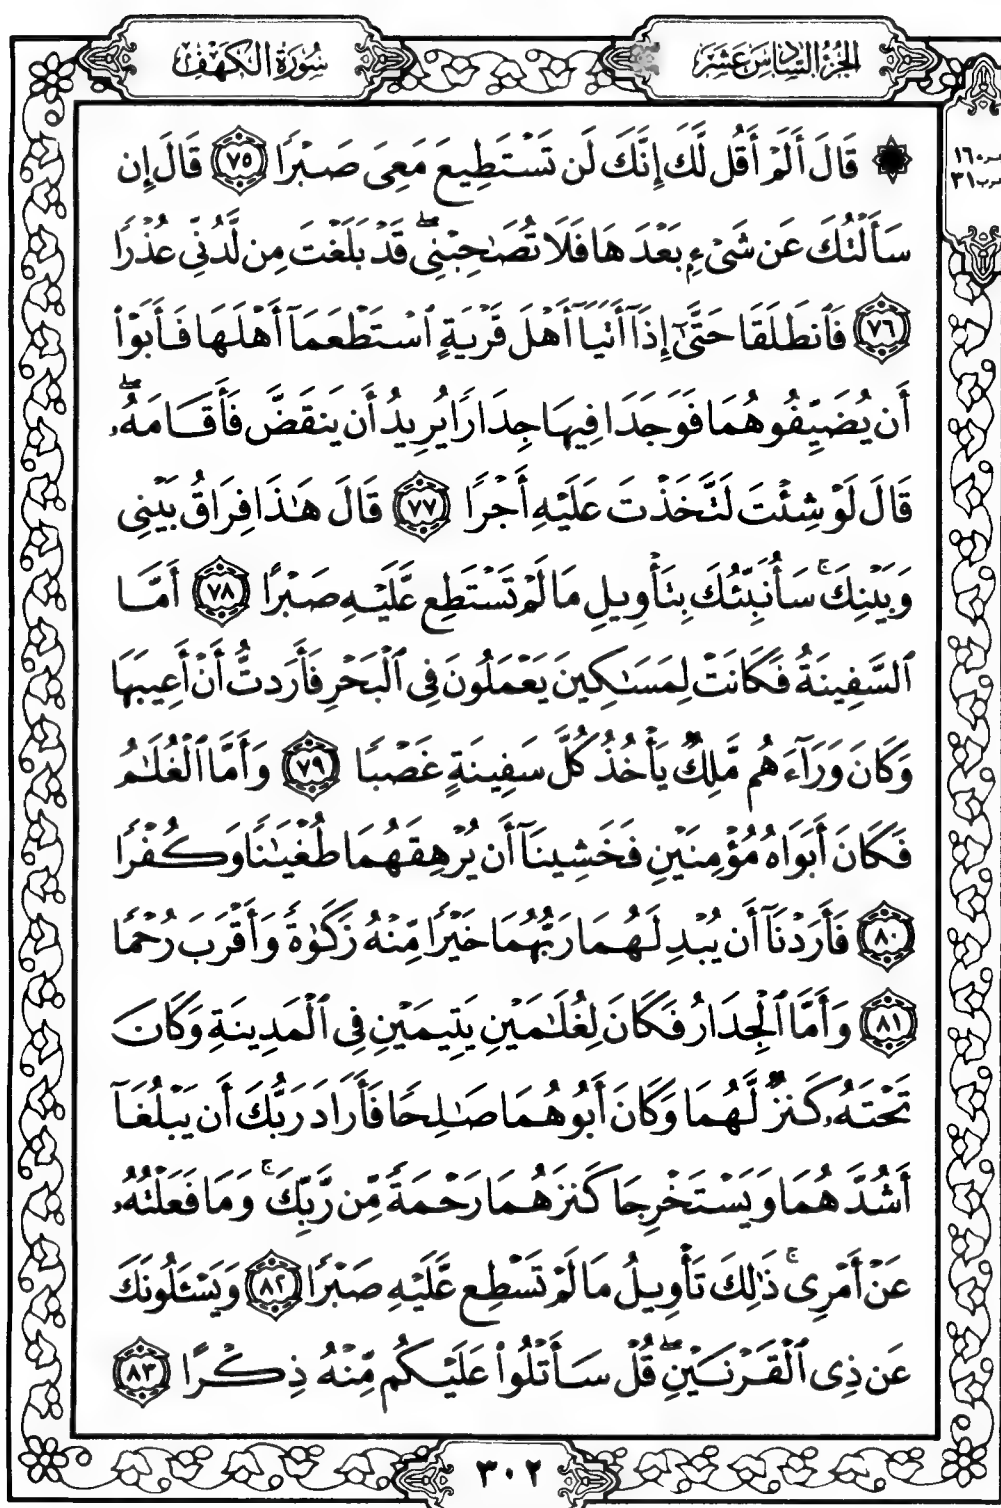 سُورَةُ الكَهْفِ
الجُزْءُ السَّادِسَ عَشَرَ
۞ قَالَ أَلَمْ أَقُل لَّكَ إِنَّكَ لَن تَسْتَطِيعَ مَعِىَ صَبْرًا ٧٥ قَالَ إِن
سَأَلْتُكَ عَن شَىْءٍۭ بَعْدَهَا فَلَا تُصَٰحِبْنِىۖ قَدْ بَلَغْتَ مِن لَّدُنِّى عُذْرًا
٧٦ فَٱنطَلَقَا حَتَّىٰٓ إِذَآ أَتَيَآ أَهْلَ قَرْيَةٍ ٱسْتَطْعَمَآ أَهْلَهَا فَأَبَوْا۟
أَن يُضَيِّفُوهُمَا فَوَجَدَا فِيهَا جِدَارًا يُرِيدُ أَن يَنقَضَّ فَأَقَامَهُۥۖ
قَالَ لَوْ شِئْتَ لَتَّخَذْتَ عَلَيْهِ أَجْرًا ٧٧ قَالَ هَٰذَا فِرَاقُ بَيْنِى
وَبَيْنِكَۚ سَأُنَبِّئُكَ بِتَأْوِيلِ مَا لَمْ تَسْتَطِع عَّلَيْهِ صَبْرًا ٧٨ أَمَّا
ٱلسَّفِينَةُ فَكَانَتْ لِمَسَٰكِينَ يَعْمَلُونَ فِى ٱلْبَحْرِ فَأَرَدتُّ أَنْ أَعِيبَهَا
وَكَانَ وَرَآءَهُم مَّلِكٌ يَأْخُذُ كُلَّ سَفِينَةٍ غَصْبًا ٧٩ وَأَمَّا ٱلْغُلَٰمُ
فَكَانَ أَبَوَاهُ مُؤْمِنَيْنِ فَخَشِينَآ أَن يُرْهِقَهُمَا طُغْيَٰنًا وَكُفْرًا
٨٠ فَأَرَدْنَآ أَن يُبْدِلَهُمَا رَبُّهُمَا خَيْرًا مِّنْهُ زَكَوٰةً وَأَقْرَبَ رُحْمًا
٨١ وَأَمَّا ٱلْجِدَارُ فَكَانَ لِغُلَٰمَيْنِ يَتِيمَيْنِ فِى ٱلْمَدِينَةِ وَكَانَ
تَحْتَهُۥ كَنزٌ لَّهُمَا وَكَانَ أَبُوهُمَا صَٰلِحًا فَأَرَادَ رَبُّكَ أَن يَبْلُغَآ
أَشُدَّهُمَا وَيَسْتَخْرِجَا كَنزَهُمَا رَحْمَةً مِّن رَّبِّكَۚ وَمَا فَعَلْتُهُۥ
عَنْ أَمْرِىۚ ذَٰلِكَ تَأْوِيلُ مَا لَمْ تَسْطِع عَّلَيْهِ صَبْرًا ٨٢ وَيَسْـَٔلُونَكَ
عَن ذِى ٱلْقَرْنَيْنِۖ قُلْ سَأَتْلُوا۟ عَلَيْكُم مِّنْهُ ذِكْرًا ٨٣
٣٠٢